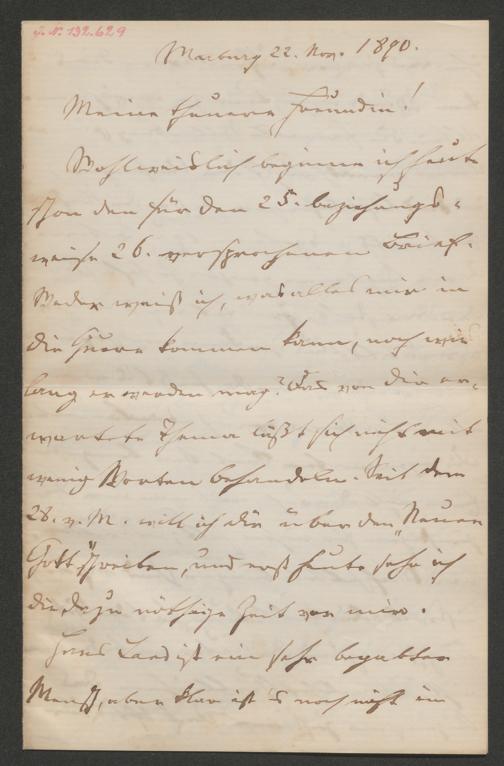 J. N. 132.629
Marburg 22. Nov. 1890.
Meine theuere Freundin!
Wohlweislich beginne ich heute
schon den für den 25. beziehungs-
weise 26. versprochenen Brief.
Weder weiß ich, was alles mir in
die Quere kommen kann, noch wie
lang er werden mag. Das von dir er-
wartete Thema läßt sich nicht mit
wenig Worten behandeln. Seit dem
28. v. M. will ich dir über den "Neuen
Gott" schreiben, und erst heute sehe ich
die dazu nöthige Zeit vor mir.
Hans Land ist ein sehr begabter
Mensch, aber klar ist's noch nicht in